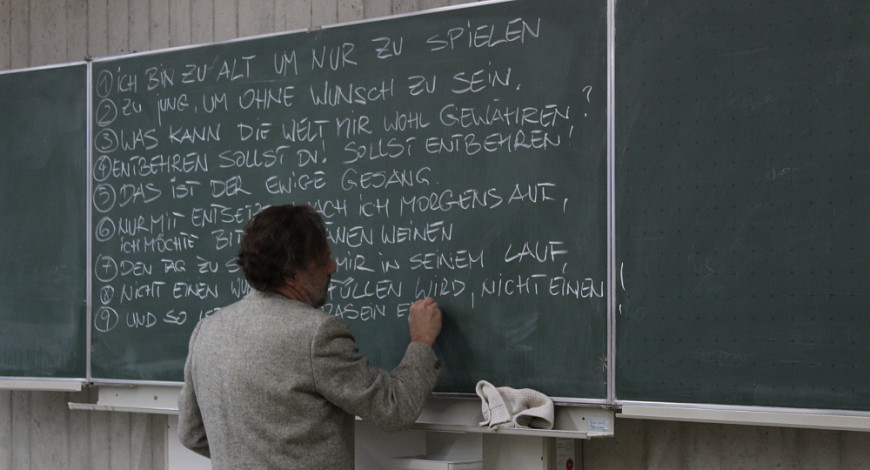 ① ICH BIN ZU ALT UM NUR ZU SPIELEN
② ZU JUNG, UM OHNE WUNSCH ZU SEIN.
③ WAS KANN DIE WELT MIR WOHL GEWÄHREN?
④ ENTBEHREN SOLLST DU! SOLLST ENTBEHREN!
⑤ DAS IST DER EWIGE GESANG.
⑥ NUR MIT ICH MORGENS AUF,
ICH MÖCHTE WEINEN
⑦ DEN TAG ZU MIR IN SEINEM LAUF,
⑧ NICHT EINEN WIRD, NICHT EINEN
⑨ UND SO DASEIN